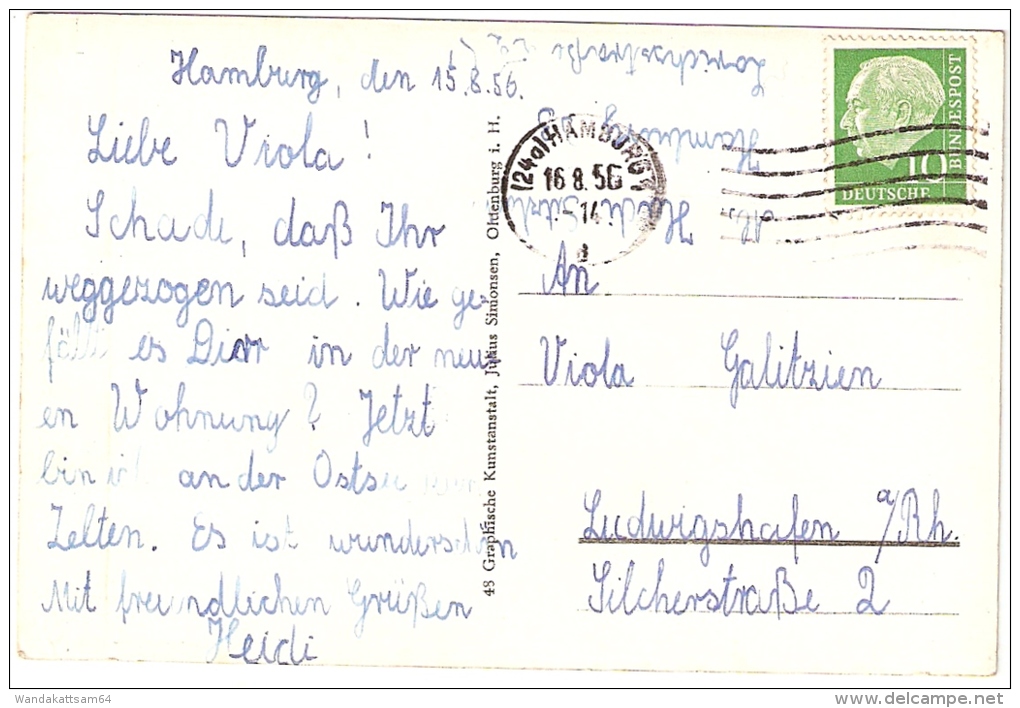 Hamburg, den 15.8.56.
Liebe Viola!
Schade, daß Ihr
weggezogen seid. Wie ge-
fällt es Dir in der neu-
en Wohnung? Jetzt
bin ich an der Ostsee zum
Zelten. Es ist wunderschön
Mit freundlichen Grüßen
Heidi
48 Graphische Kunstanstalt, Julius Simonsen, Oldenburg i. H.
Heidi
Hamburg
(24a) HAMBURG 1
16 8.56
14
DEUTSCHE
BUNDESPOST
10
An
Viola Galitzien
Ludwigshafen a/Rh.
Silcherstraße 2
Wandakattsam64